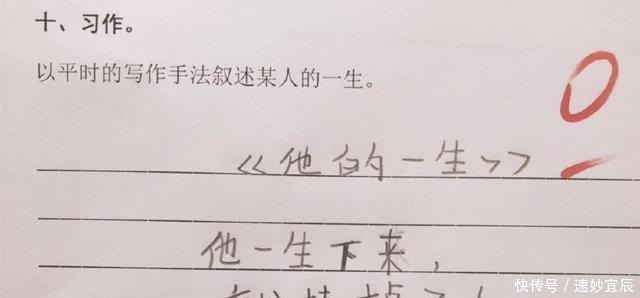 十、习作。
以平时的写作手法叙述某人的一生。
0
《他的一生》
他一生下来，
快传号／速妙宜辰